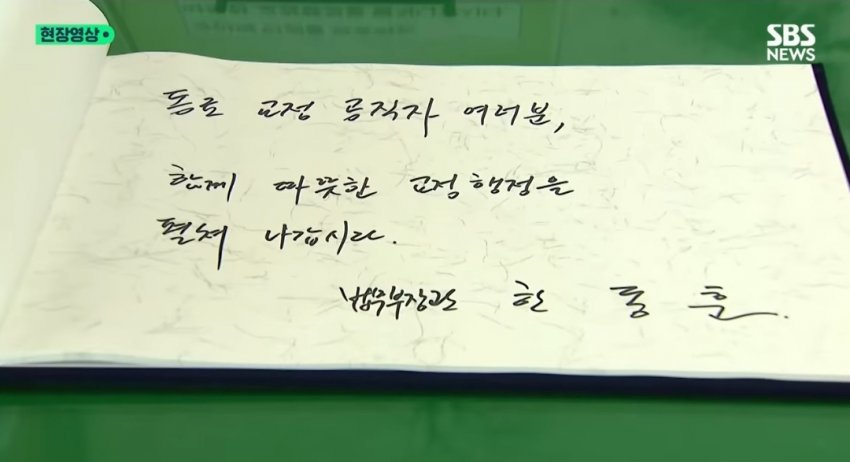 현장영상
SBS
NEWS
동료 교정 공직자 여러분,
함께 따뜻한 교정행정을
펼쳐 나갑시다.
법무부장관 한 동 훈.